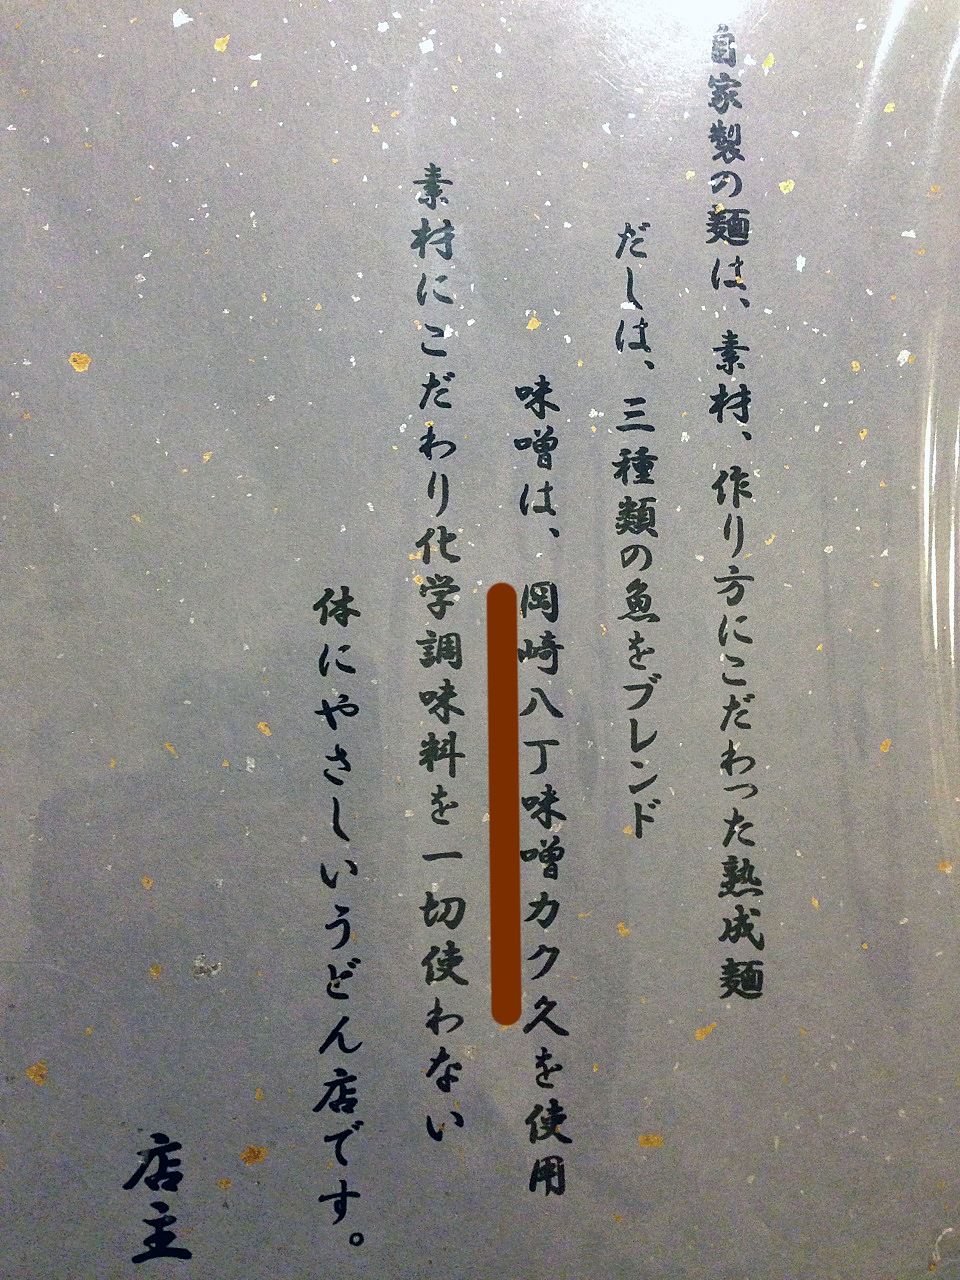 自家製の麺は、素材、作り方にこだわった熟成麺
だしは、三種類の魚をブレンド
味噌は、岡崎八丁味噌カク久を使用
素材にこだわり化学調味料を一切使わない
体にやさしいうどん店です。
店主